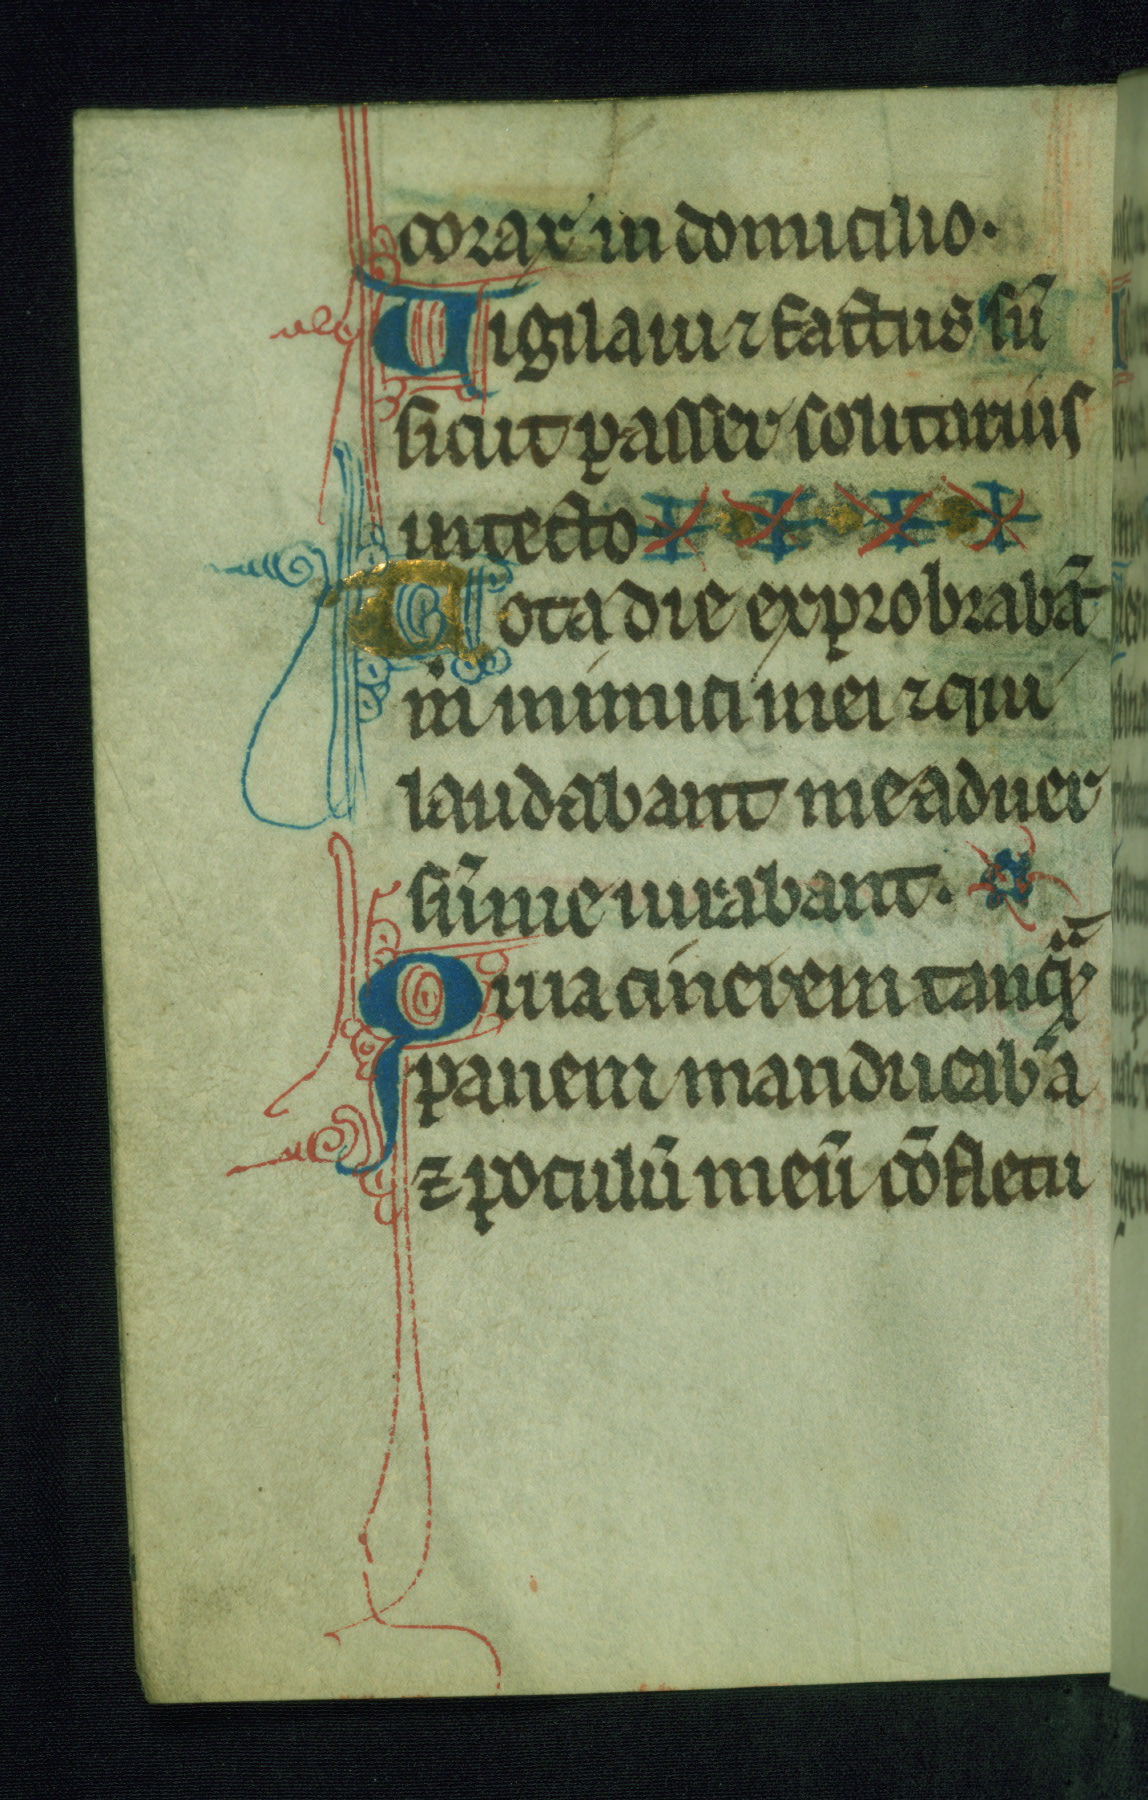 corax in domicilio.
Uigilaui ⁊ factus sū
sicut passer solitarius
in tecto
Tota die exprobrabāt
m̄ inimici mei ⁊ qui
laudabant me aduer
sū me iurabant.
Quia cinerem tanq̄
panem manducabā
⁊ poculū meū cō fletu